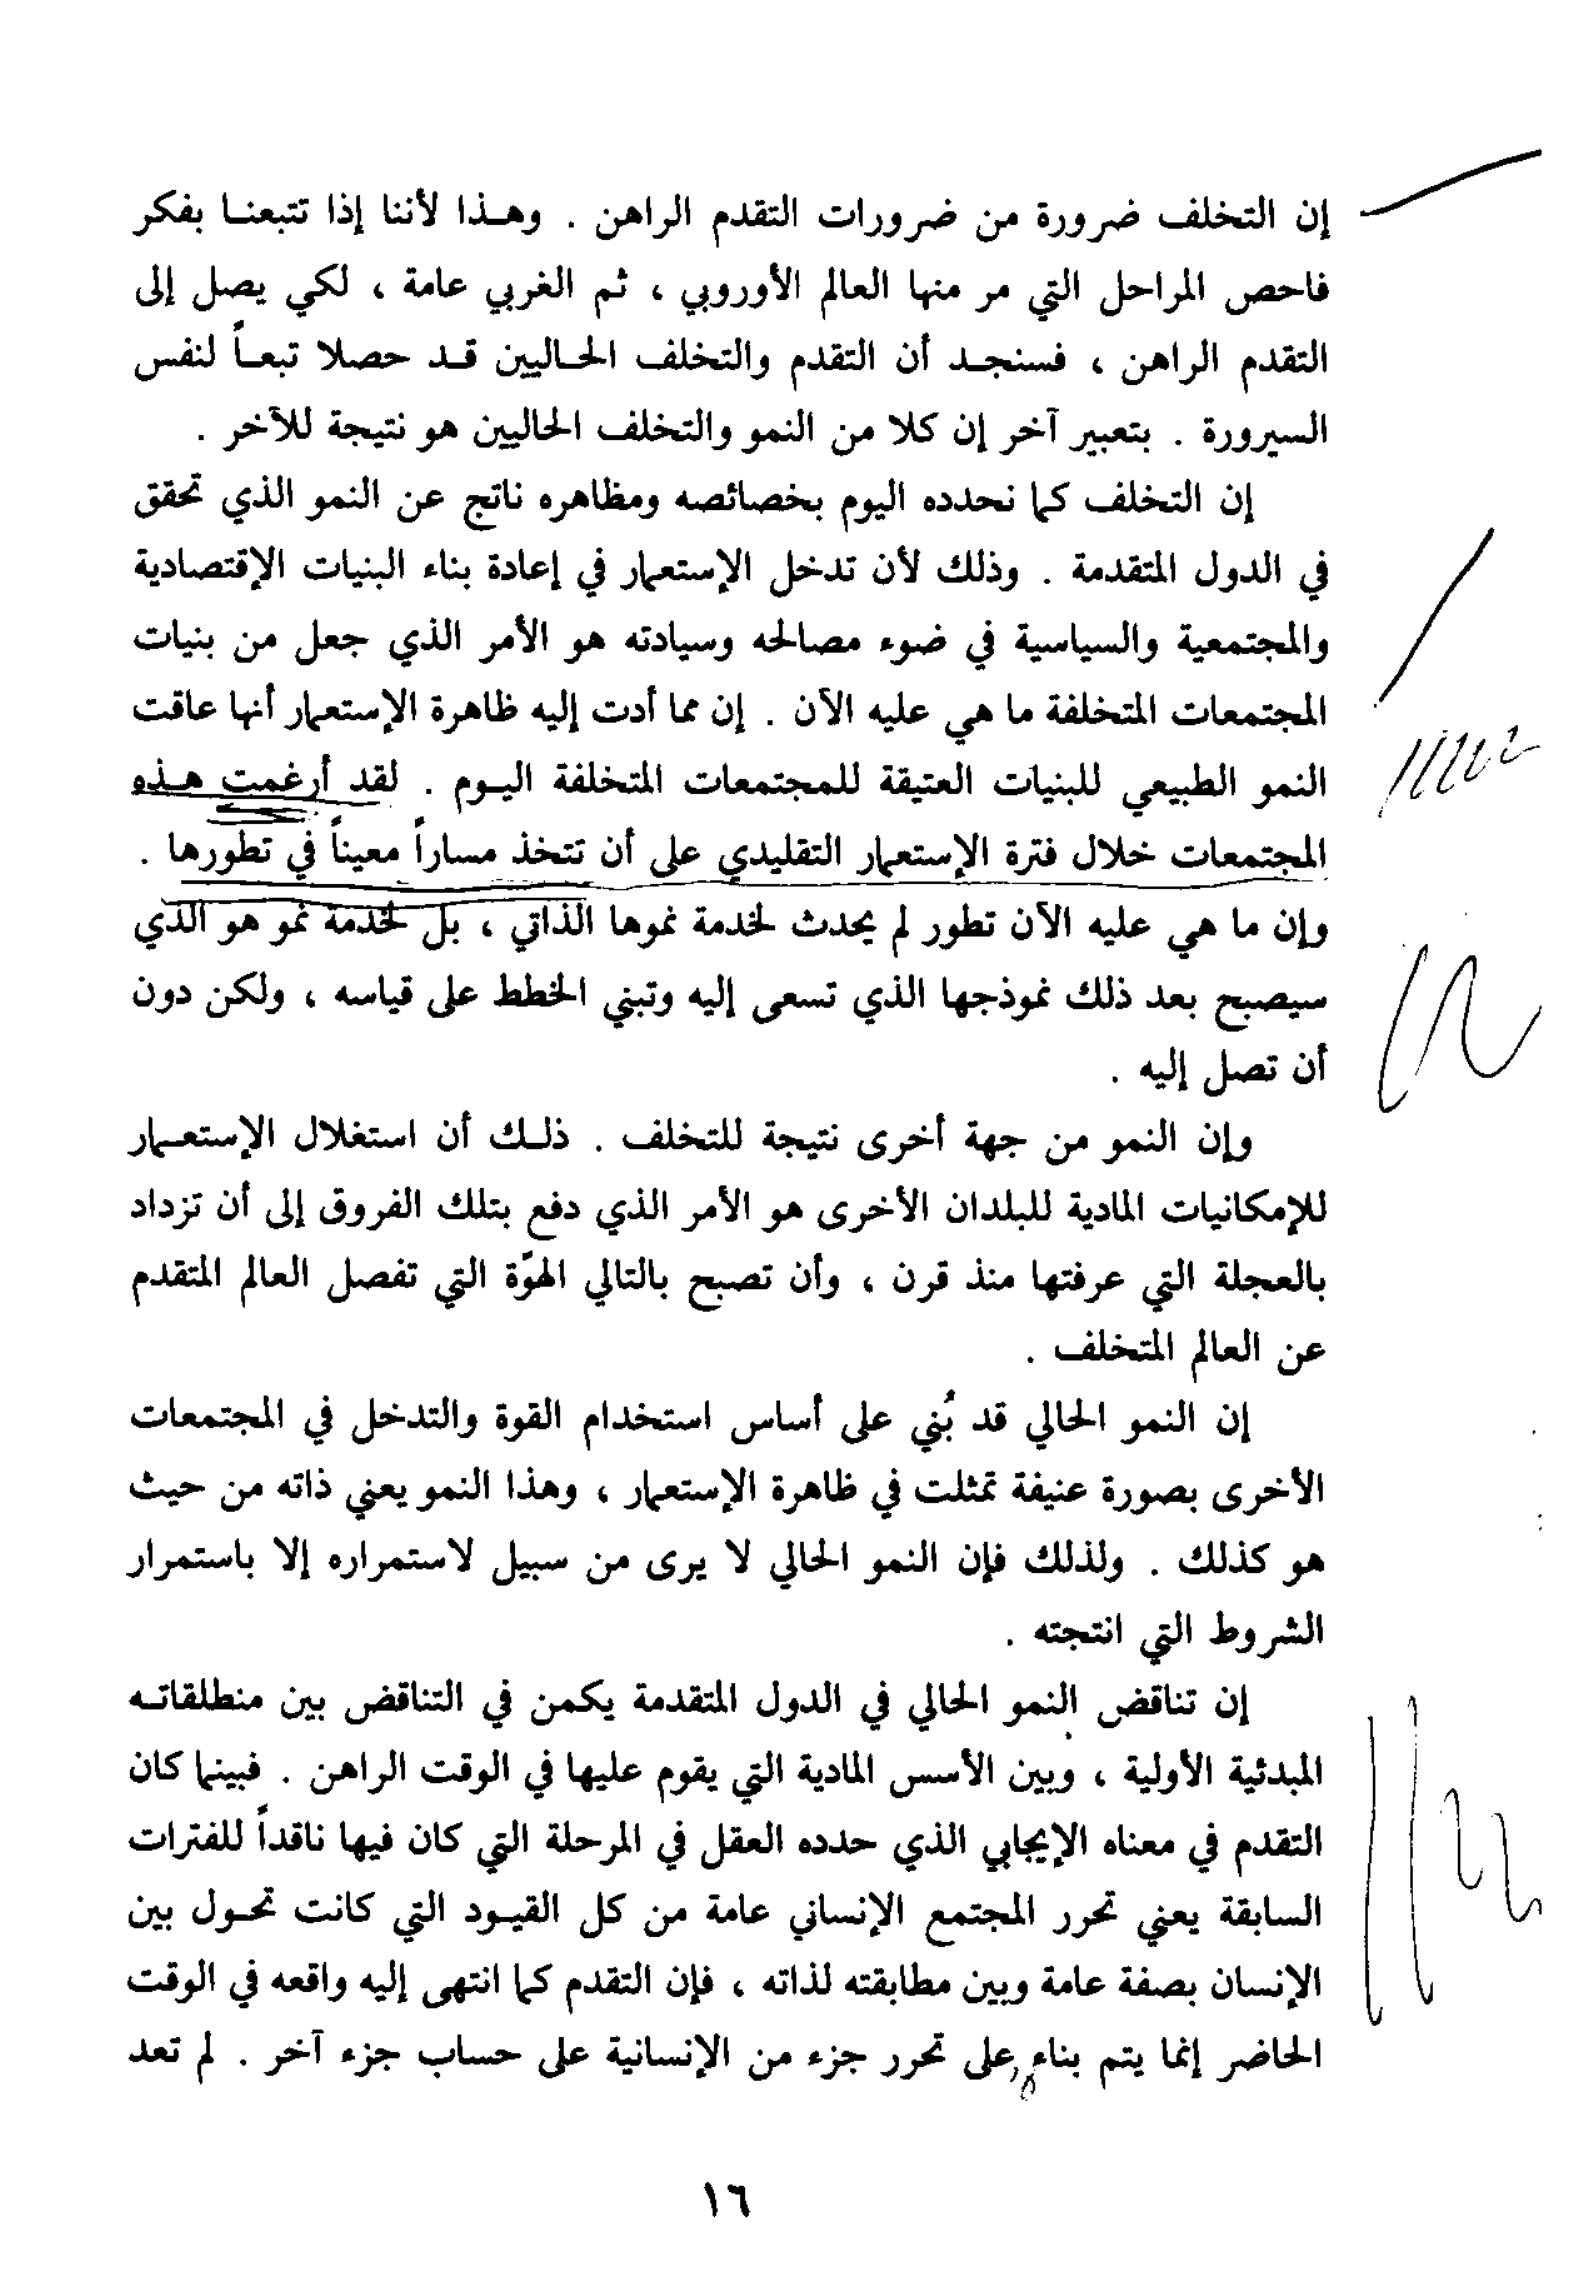 إن التخلف ضرورة من ضرورات التقدم الراهن . وهذا لأننا إذا تتبعنا بفكر
فاحص المراحل التي مر منها العالم الأوروبي ، ثم الغربي عامة ، لكي يصل إلى
التقدم الراهن ، فسنجد أن التقدم والتخلف الحاليين قد حصلا تبعاً لنفس
السيرورة . بتعبير آخر إن كلا من النمو والتخلف الحاليين هو نتيجة للآخر .
إن التخلف كما نحدده اليوم بخصائصه ومظاهره ناتج عن النمو الذي تحقق
في الدول المتقدمة . وذلك لأن تدخل الإستعمار في إعادة بناء البنيات الإقتصادية
والمجتمعية والسياسية في ضوء مصالحه وسيادته هو الأمر الذي جعل من بنيات
المجتمعات المتخلفة ما هي عليه الآن . إن مما أدت إليه ظاهرة الإستعمار أنها عاقت
النمو الطبيعي للبنيات العتيقة للمجتمعات المتخلفة اليوم . لقد أرغمت هذه
المجتمعات خلال فترة الإستعمار التقليدي على أن تتخذ مساراً معيناً في تطورها .
وإن ما هي عليه الآن تطور لم يحدث لخدمة نموها الذاتي ، بل لخدمة نمو هو الذي
سيصبح بعد ذلك نموذجها الذي تسعى إليه وتبني الخطط على قياسه ، ولكن دون
أن تصل إليه .
وإن النمو من جهة أخرى نتيجة للتخلف . ذلك أن استغلال الإستعمار
للإمكانيات المادية للبلدان الأخرى هو الأمر الذي دفع بتلك الفروق إلى أن تزداد
بالعجلة التي عرفتها منذ قرن ، وأن تصبح بالتالي الهوّة التي تفصل العالم المتقدم
عن العالم المتخلف .
إن النمو الحالي قد بُني على أساس استخدام القوة والتدخل في المجتمعات
الأخرى بصورة عنيفة تمثلت في ظاهرة الإستعمار ، وهذا النمو يعني ذاته من حيث
هو كذلك . ولذلك فإن النمو الحالي لا يرى من سبيل لاستمراره إلا باستمرار
الشروط التي انتجته .
إن تناقض النمو الحالي في الدول المتقدمة يكمن في التناقض بين منطلقاته
المبدئية الأولية ، وبين الأسس المادية التي يقوم عليها في الوقت الراهن . فبينما كان
التقدم في معناه الإيجابي الذي حدده العقل في المرحلة التي كان فيها ناقداً للفترات
السابقة يعني تحرر المجتمع الإنساني عامة من كل القيود التي كانت تحول بين
الإنسان بصفة عامة وبين مطابقته لذاته ، فإن التقدم كما انتهى إليه واقعه في الوقت
الحاضر إنما يتم بناء على تحرر جزء من الإنسانية على حساب جزء آخر . لم تعد
١٦